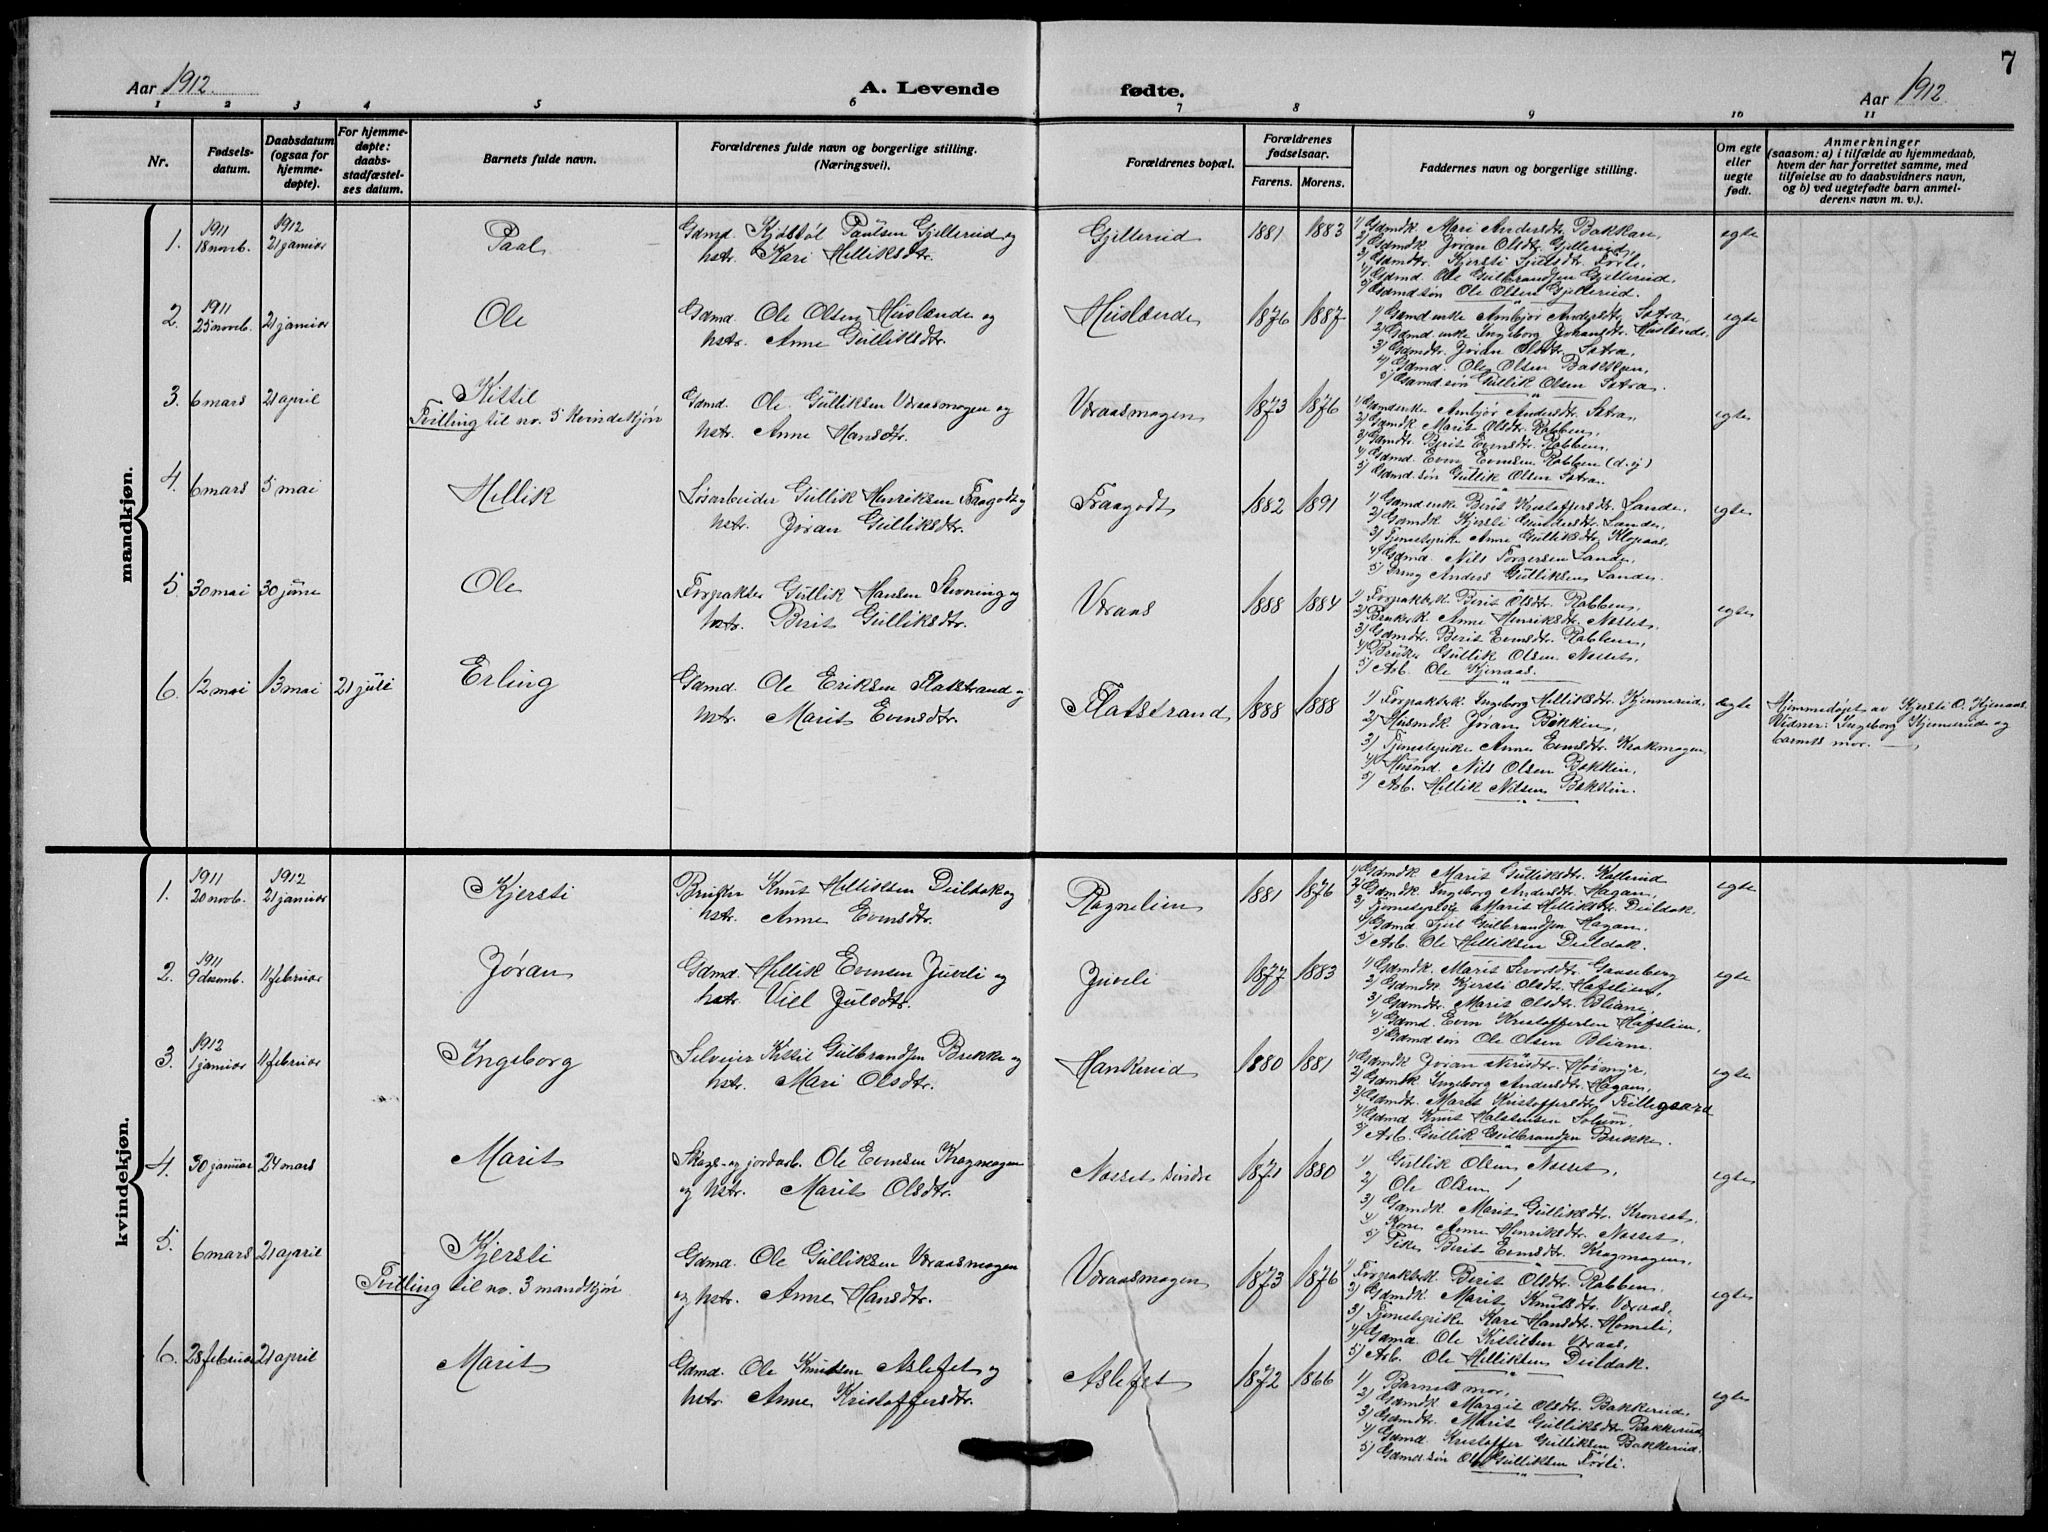 7
Aar 1912.
A. Levende fødte.
Aar 1912
1 2 3 4 5 6 7 8 9 10 11
Nr.
Fødsels-
datum.
Daabsdatum
(ogsaa for
hjemme-
døpte).
For hjemme-
døpte:
daabs-
stadfæstel-
ses datum.
Barnets fulde navn.
Forældrenes fulde navn og borgerlige stilling.
(Næringsvei).
Forældrenes bopæl.
Forældrenes
fødselsaar.
Farens. Morens.
Faddernes navn og borgerlige stilling.
Om egte
eller
uegte
født.
Anmerkninger
(saasom: a) i tilfælde av hjemmedaab,
hvem der har forrettet samme, med
tilføielse av to daabsvidners navn,
og b) ved uegtefødte barn anmel-
derens navn m. v.).
mandkjøn.
1. 1911 18 novb. 1912 21 januar Paal
Gdmd. Kjøstøl Paulsen Gjellerud og
hstr. Kari Helliksdtr.
Gjellerud 1881 1883
1) Gdmdk. Mari Andersdtr. Bakkan,
2) Gdmdk. Jøran Olsdtr. Gjellerud,
3) Gdmdtr. Kjersti Juelsdtr. Førli,
4) Gdmd. Ole Gulbrandsen Gjellerud,
5) Gdmdsøn Ole Olsen Gjellerud.
egte
2. 1911 25 novb. 21 januar Ole
Gdmd. Ole Olsen Huslænde og
hstr. Anne Gulliksdtr.
Huslænde 1876 1887
1) Gdmdenke Ambjør Andersdtr. Satra,
2) Gdmdenke Ingeborg Johansdtr. Huslænde,
3) Gdmdtr. Jøran Olsdtr. Satra,
4) Gdmd. Ole Olsen Bakken,
5) Gdmdsøn Gullik Olsen Satra.
egte
3. 6 mars 21 april Kittil
Tvilling til no. 5 kvindekjøn
Gdmd. Ole Gulliksen Vøraasmogen og
hstr. Anne Hansdtr.
Vøraasmogen 1873 1876
1) Gdmdenke Ambjør Andersdtr. Satra,
2) Gdmdk. Marit Olsdtr. Rabben,
3) Gdmdtr. Berit Evensdtr. Rabben,
4) Gdmd. Even Evensen Rabben (d. y.)
5) Gdmdsøn Gullik Olsen Satra.
egte
4. 6 mars 5 mai Hellik
Løsarbeider Gullik Henriksen Fraagodt og
hstr. Jøran Gulliksdtr.
Fraagodt 1882 1891
1) Gdmdenke Berit Kristoffersdtr. Lande,
2) Gdmdk. Kjersti Gundersdtr. Lande,
3) Tjenestepike Anne Gulliksdtr. Klopaas,
4) Gdmd. Nils Torgersen Lande,
5) Ung. Anders Gulliksen Lande.
egte
5. 30 mai 30 june Ole
Forpakter Gullik Hansen Skuning og
hstr. Berit Gulliksdtr.
Vøraas 1888 1884
1) Forpakterk. Berit Olsdtr. Rabben,
2) Brukerk. Anne Henriksdtr. Nosset,
3) Gdmdtr. Berit Evensdtr. Rabben,
4) Bruker Gullik Olsen Nosset,
5) Arb. Ole Kjenaas.
egte
6. 12 mai 13 mai 21 juli Erling
Gdmd. Ole Eriksen Flatstrand og
hstr. Marit Evensdtr.
Flatstrand 1888 1888
1) Forpakterk. Ingeborg Helliksdtr. Kjennerud,
2) Husmdk. Jøran Bakken,
3) Tjenestepike Anne Evensdtr. Krokmogen,
4) Husmd. Nils Olsen Bakken,
5) Arb. Hellik Nilsen Bakken.
egte
Hjemmedøpt av Kjersti O. Kjenaas.
Vidner: Ingeborg Kjennerud og
barnets mor.
kvindekjøn.
1. 1911 20 novb. 1912 21 januar Kjersti
Knut Helliksen Duldok og
hstr. Anne Evensdtr.
Rognelien 1881 1876
1) Gdmdk. Marit Gulliksdtr. Kallerud
2) Gdmdk. Ingeborg Andersdtr. Hagan,
3) Tjenestepike Marit Helliksdtr. Duldok,
4) Gdmd. Juel Gulbrandsen Hagan,
5) Arb. Ole Helliksen Duldok.
egte
2. 1911 9 desemb. 11 februar Jøran
Gdmd. Hellik Evensen Juveli og
hstr. Viel Julsdtr.
Juveli 1877 1883
1) Gdmdk. Marit Sivorsdtr. Gaaseberg
2) Gdmdk. Kjersti Olsdtr. Hafslien,
3) Gdmdtr. Marit Olsdtr. Bliane,
4) Gdmd. Even Kristoffersen Hafslien,
5) Gdmdsøn Ole Olsen Bliane.
egte
3. 1912 1 januar 11 februar Ingeborg
Selveier Kittil Gulbrandsen Brekke og
hstr. Mari Olsdtr.
Hankerud 1880 1881
1) Gdmdk. Jøran Nirisdtr. Høimyr,
2) Gdmdk. Ingeborg Andersdtr. Hagan,
3) Gdmdtr. Marit Kristoffersdtr. Fillegaard
4) Gdmd. Knut Halstensen Solum,
5) Arb. Gullik Gulbrandsen Brekke.
egte
4. 30 januar 24 mars Marit
Skogs- og jordarb. Ole Evensen Kragmogen
og hstr. Marit Olsdtr.
Nosset søndre 1871 1880
1) Gullik Olsen Nosset,
2) Ole Olsen /
3) Gdmdk. Marit Gulliksdtr. Kronset,
4) Kone Anne Henriksdtr. Nosset,
5) Pike Berit Evensdtr. Kragmogen,
egte
5. 6 mars 21 april Kjersti
Tvilling til no. 3 mandkjøn
Gdmd. Ole Gulliksen Vøraasmogen
og hstr. Anne Hansdtr.
Vøraasmogen 1873 1876
1) Forpakterk. Berit Olsdtr. Rabben,
2) Gdmdk. Marit Knutsdtr. Vøraas,
3) Tjenestepike Kari Hansdtr. Homeli,
4) Gdmd. Ole Kittilsen Vøraas,
5) Arb. Ole Helliksen Duldok.
egte
6. 28 februar 21 april Marit
Gdmd. Ole Knutsen Aslefet og
hstr. Anne Kristoffersdtr.
Aslefet 1872 1866
1) Barnets mor,
2) Gdmdk. Margit Olsdtr. Bakkerud,
3) Gdmdtr. Marit Gulliksdtr. Bakkerud,
4) Gdmd. Kristoffer Gulliksen Bakkerud,
5) Gdmdsøn Ole Gulliksen Førli.
egte